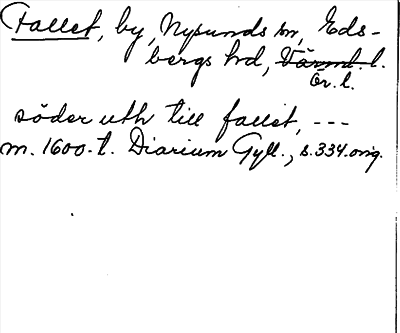 Fallet, by, Nysunds sn, Eds-
bergs hd, Värml. l.
Ör. l.
söder uth till fallet, ---
m. 1600-t. Diarium Gyll., s. 334. orig.